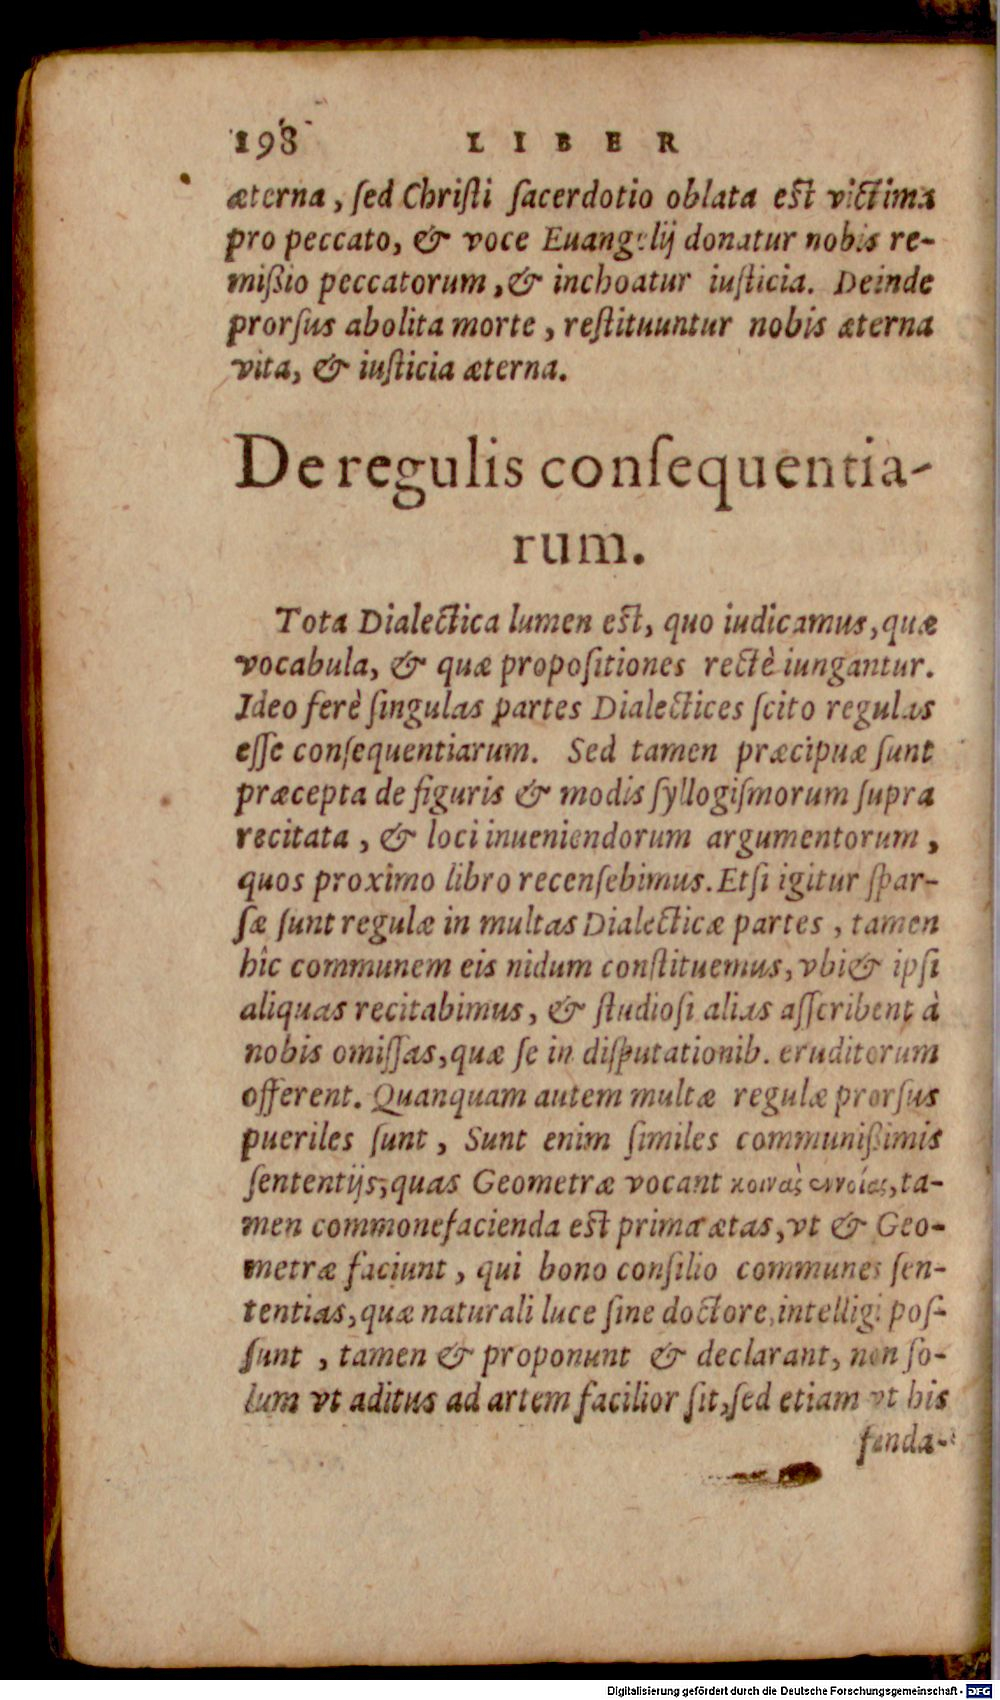 198 LIBER
æterna, ſed Chriſti ſacerdotio oblata est victima
pro peccato, & voce Euangelij donatur nobis re-
mißio peccatorum, & inchoatur iuſticia. Deinde
prorſus abolita morte, reſtituuntur nobis æterna
vita, & iuſticia æterna.
De regulis conſequentia-
rum.
Tota Dialectica lumen est, quo iudicamus, quæ
vocabula, & quæ propoſitiones rectè iungantur.
Ideo ferè ſingulas partes Dialectices ſcito regulas
eſſe conſequentiarum. Sed tamen præcipuæ ſunt
præcepta de figuris & modis ſyllogiſmorum ſupra
recitata, & loci inueniendorum argumentorum,
quos proximo libro recenſebimus. Etſi igitur ſpar-
ſæ ſunt regulæ in multas Dialecticæ partes, tamen
hîc communem eis nidum conſtituemus, vbi & ipſi
aliquas recitabimus, & ſtudioſi alias aſſcribent à
nobis omiſſas, quæ ſe in diſputationib. eruditorum
offerent. Quanquam autem multæ regulæ prorſus
pueriles ſunt, Sunt enim ſimiles communißimis
ſententijs, quas Geometræ vocant κοινὰς ἐννοίας, ta-
men commonefacienda est prima ætas, vt & Geo-
metræ faciunt, qui bono conſilio communes ſen-
tentias, quæ naturali luce ſine doctore, intelligi poſ-
ſunt, tamen & proponunt & declarant, non ſo-
lum vt aditus ad artem facilior ſit, ſed etiam vt his
funda-
Digitalisierung gefördert durch die Deutsche Forschungsgemeinschaft - DFG